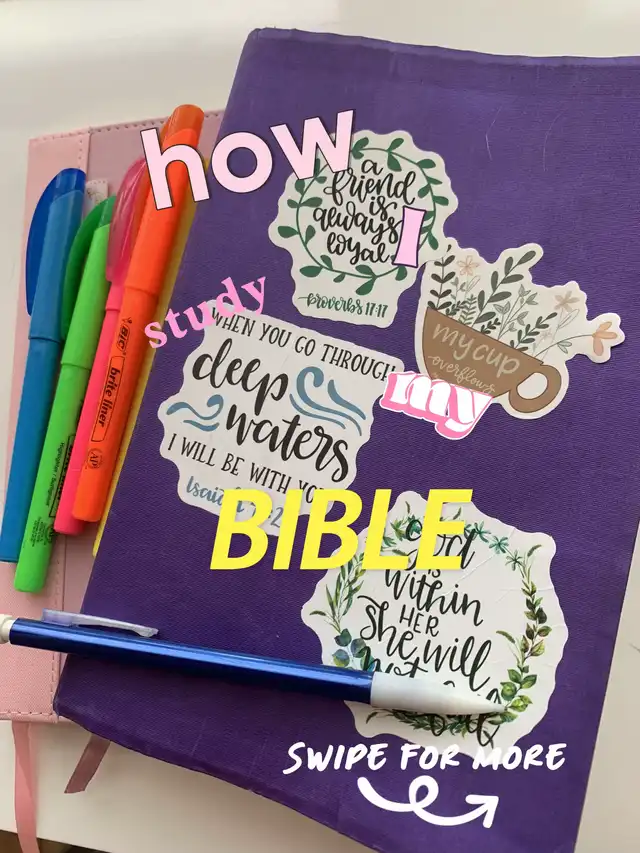 how
I
study
my
BIBLE
a
friend
is
always
loyal
proverbs 17:17
my cup
overflows
WHEN YOU GO THROUGH
deep
waters
I WILL BE WITH YOU
Isaiah
God
is
within
HER
She will
not
SWIPE FOR MORE
BIC
brite liner
AP